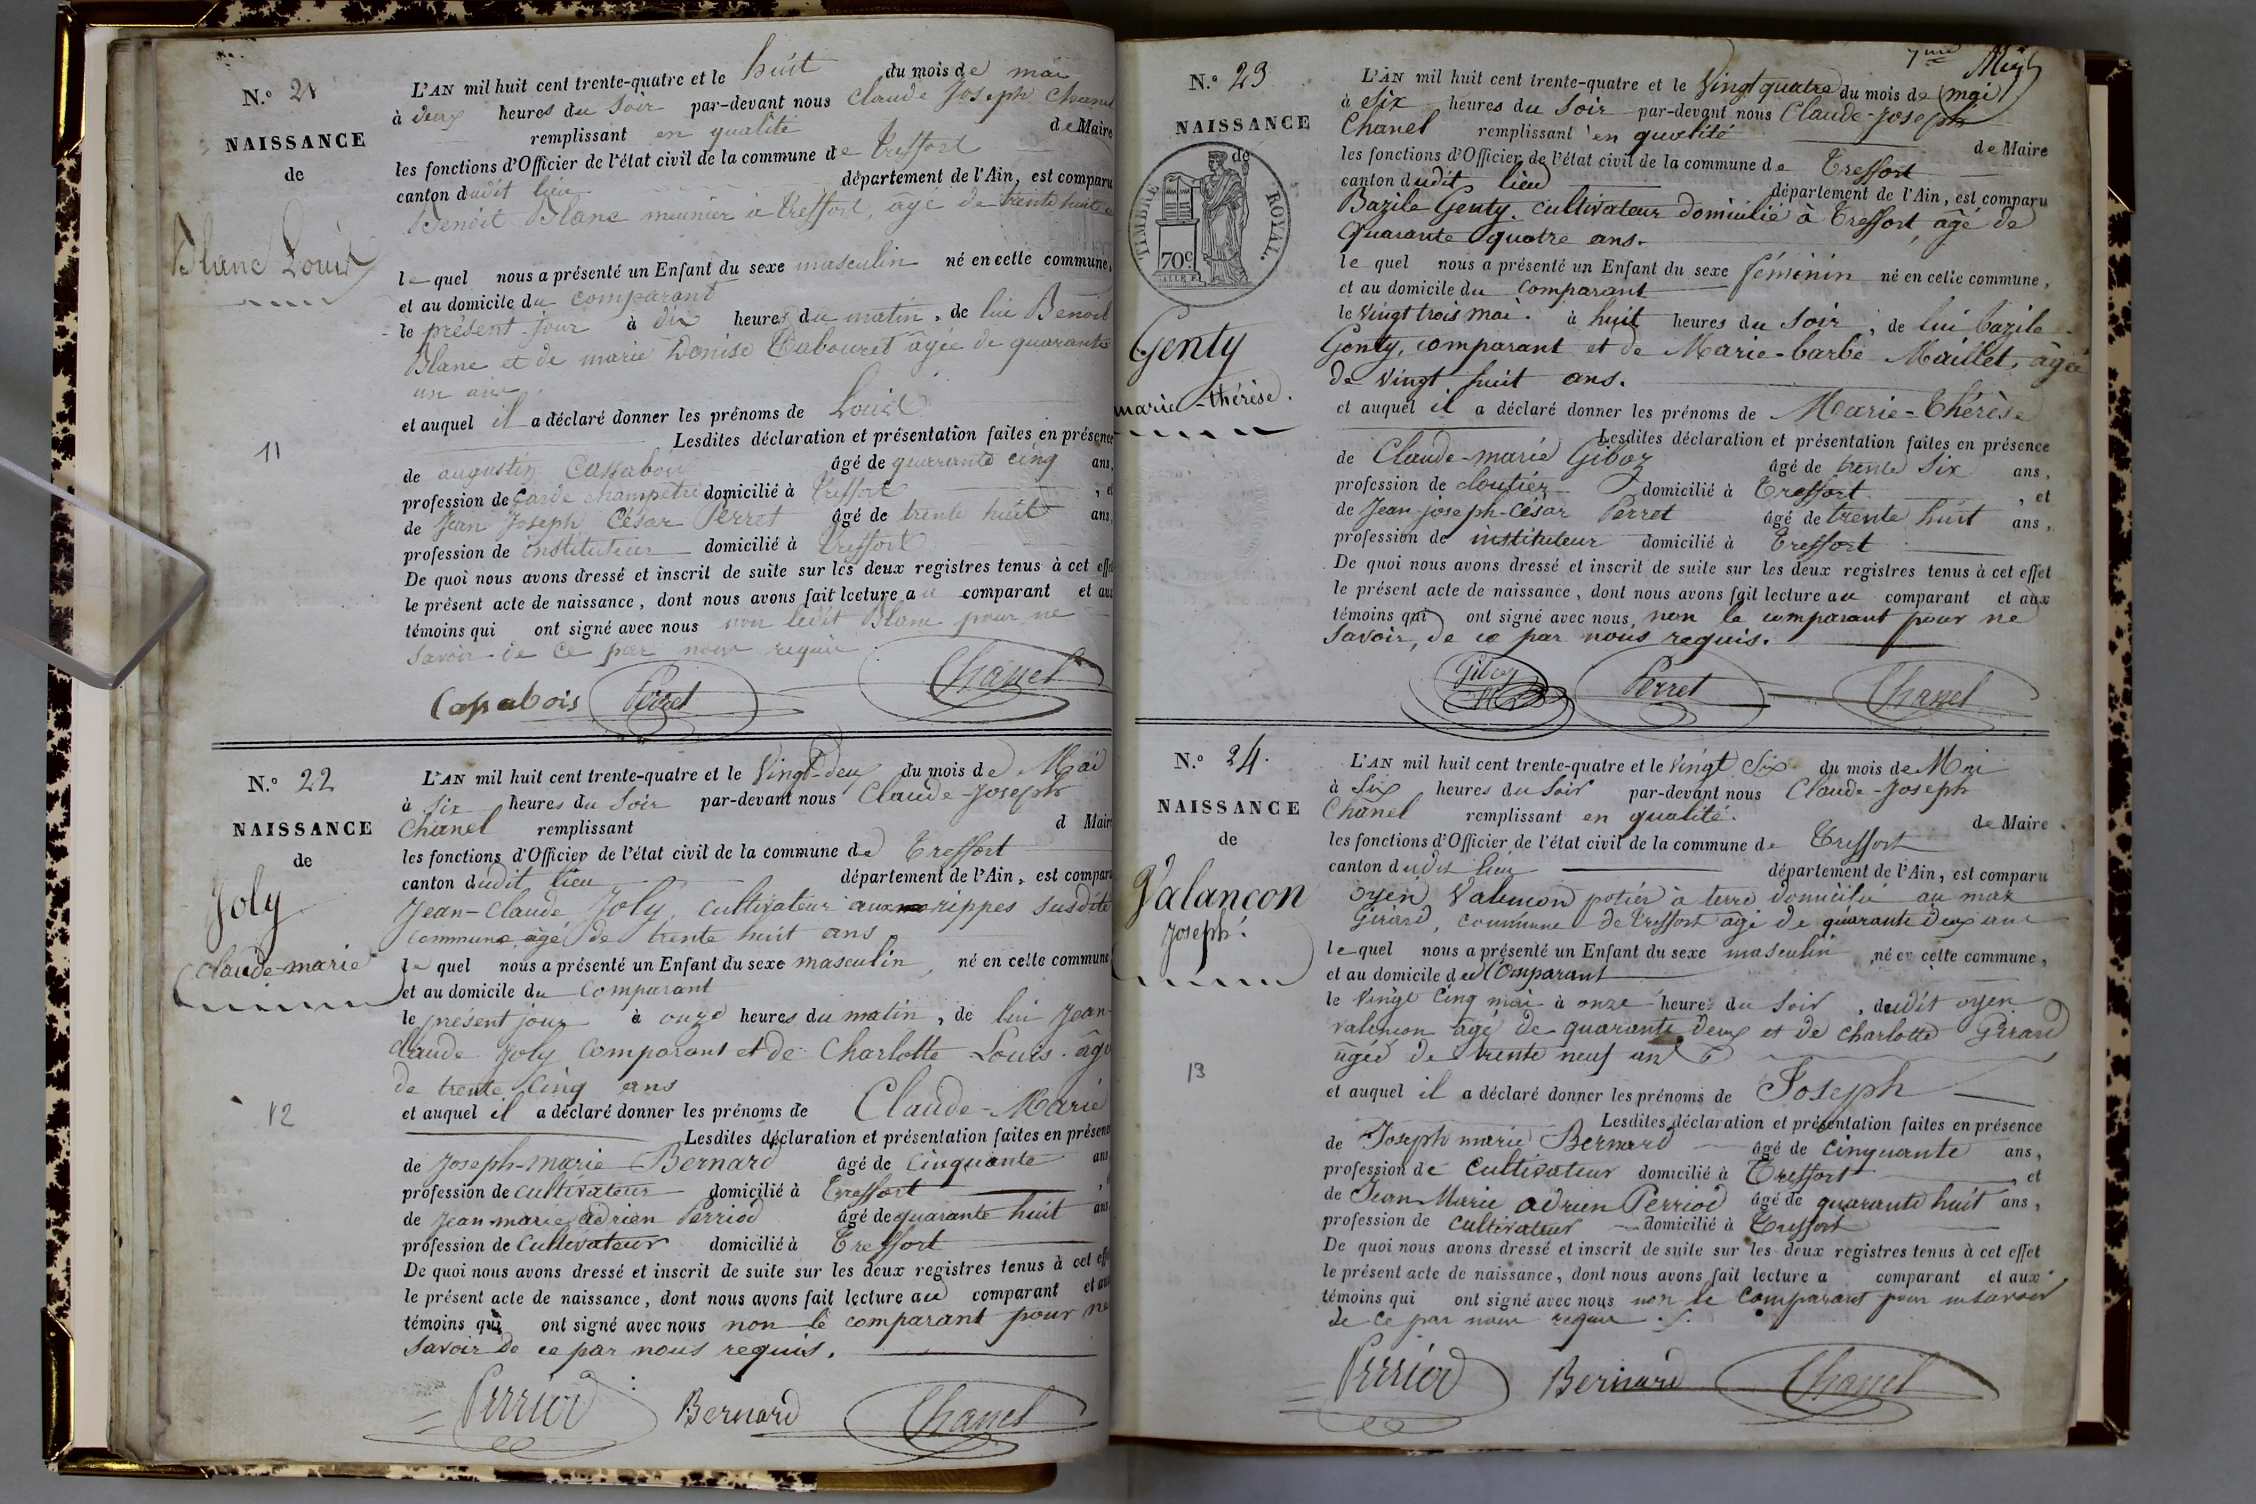 N.° 21
NAISSANCE
de
Blanc Louis
11
L'AN mil huit cent trente-quatre et le huit du mois de mai
à deux heures du soir par-devant nous Claude Joseph Chanel
remplissant en qualité de Maire
les fonctions d'Officier de l'état civil de la commune de Treffort
canton dudit lieu département de l'Ain, est comparu
Benoit Blanc meunier à Treffort, agé de trente huit
le quel nous a présenté un Enfant du sexe masculin né en cette commune,
et au domicile du comparant
le présent jour à dix heures du matin, de lui Benoit
Blanc et de marie Denise Tabouret âgée de quarante
un ans
et auquel il a déclaré donner les prénoms de Louis
Lesdites déclaration et présentation faites en présence
de augustin Cassabois âgé de quarante cinq ans,
profession de garde champetre domicilié à Treffort, et
de Jean Joseph César Perret âgé de trente huit ans,
profession de instituteur domicilié à Treffort
De quoi nous avons dressé et inscrit de suite sur les deux registres tenus à cet effet
le présent acte de naissance, dont nous avons fait lecture au comparant et aux
témoins qui ont signé avec nous non ledit Blanc pour ne
savoir de ce par nous requis
Cassabois Perret Chanel
N.° 22
NAISSANCE
de
Joly
Claude-marie
12
L'AN mil huit cent trente-quatre et le Vingt-deux du mois de Mai
à Six heures du Soir par-devant nous Claude-Joseph
Chanel remplissant d Maire
les fonctions d'Officier de l'état civil de la commune de Treffort
canton dudit lieu département de l'Ain, est comparu
Jean-Claude Joly, cultivateur aux rippes susdite
commune, agé de trente huit ans
le quel nous a présenté un Enfant du sexe masculin, né en cette commune
et au domicile du Comparant
le présent jour à onze heures du matin, de lui Jean-
claude Joly Comparant et de Charlotte Louis âgée
de trente Cinq ans
et auquel il a déclaré donner les prénoms de Claude-Marie
Lesdites déclaration et présentation faites en présence
de Joseph-marie Bernard âgé de Cinquante ans
profession de cultivateur domicilié à Treffort,
de Jean-marie adrien Perriod âgé de quarante huit ans
profession de Cultivateur domicilié à Treffort
De quoi nous avons dressé et inscrit de suite sur les deux registres tenus à cet effet
le présent acte de naissance, dont nous avons fait lecture au comparant et aux
témoins qui ont signé avec nous non le comparant pour ne
Savoir de ce par nous requis.
Perriod Bernard Chanel
7me Mai
N.° 23
NAISSANCE
de
TIMBRE ROYAL.
70c
Genty
marie-thérèse.
L'AN mil huit cent trente-quatre et le Vingt quatre du mois de mai
à Six heures du Soir par-devant nous Claude-Joseph
Chanel remplissant en qualité de Maire
les fonctions d'Officier de l'état civil de la commune de Treffort
canton dudit lieu département de l'Ain, est comparu
Bazile Genty. cultivateur domicilié à Treffort, âgé de
Quarante quatre ans.
le quel nous a présenté un Enfant du sexe féminin né en cette commune,
et au domicile du comparant
le vingt trois mai. à huit heures du Soir, de lui bazile
Genty, comparant et de Marie-barbe Maillet, âgée
de vingt huit ans.
et auquel il a déclaré donner les prénoms de Marie-Thérèse
Lesdites déclaration et présentation faites en présence
de Claude-marie Giboz âgé de trente six ans,
profession de cloutier domicilié à Treffort, et
de Jean-joseph-César Perret âgé de trente huit ans,
profession de instituteur domicilié à Treffort
De quoi nous avons dressé et inscrit de suite sur les deux registres tenus à cet effet
le présent acte de naissance, dont nous avons fait lecture au comparant et aux
témoins qui ont signé avec nous, non le comparant pour ne
Savoir, de ce par nous requis.
Giboz Perret Chanel
N.° 24.
NAISSANCE
de
Valancon
Joseph.
13
L'AN mil huit cent trente-quatre et le vingt Six du mois de Mai
à Six heures du Soir par-devant nous Claude-Joseph
Chanel remplissant en qualité. de Maire
les fonctions d'Officier de l'état civil de la commune de Treffort
canton dudit lieu département de l'Ain, est comparu
oyen Valencon potier à terre domicilié au max
Girard, commune de treffort agé de quarante deux ans
le quel nous a présenté un Enfant du sexe masculin, né en cette commune,
et au domicile du Comparant
le vingt Cinq mai à onze heures du Soir, dudit oyen
valencon agé de quarante deux et de charlotte Girard
agée de trente neuf ans
et auquel il a déclaré donner les prénoms de Joseph
Lesdites déclaration et présentation faites en présence
de Joseph marie Bernard âgé de Cinquante ans,
profession de Cultivateur domicilié à Treffort, et
de Jean-Marie adrien Perriod âgé de quarante huit ans,
profession de cultivateur domicilié à Treffort
De quoi nous avons dressé et inscrit de suite sur les deux registres tenus à cet effet
le présent acte de naissance, dont nous avons fait lecture a comparant et aux
témoins qui ont signé avec nous non le Comparant pour ne savoir
de ce par nous requis
Perriod Bernard Chanel